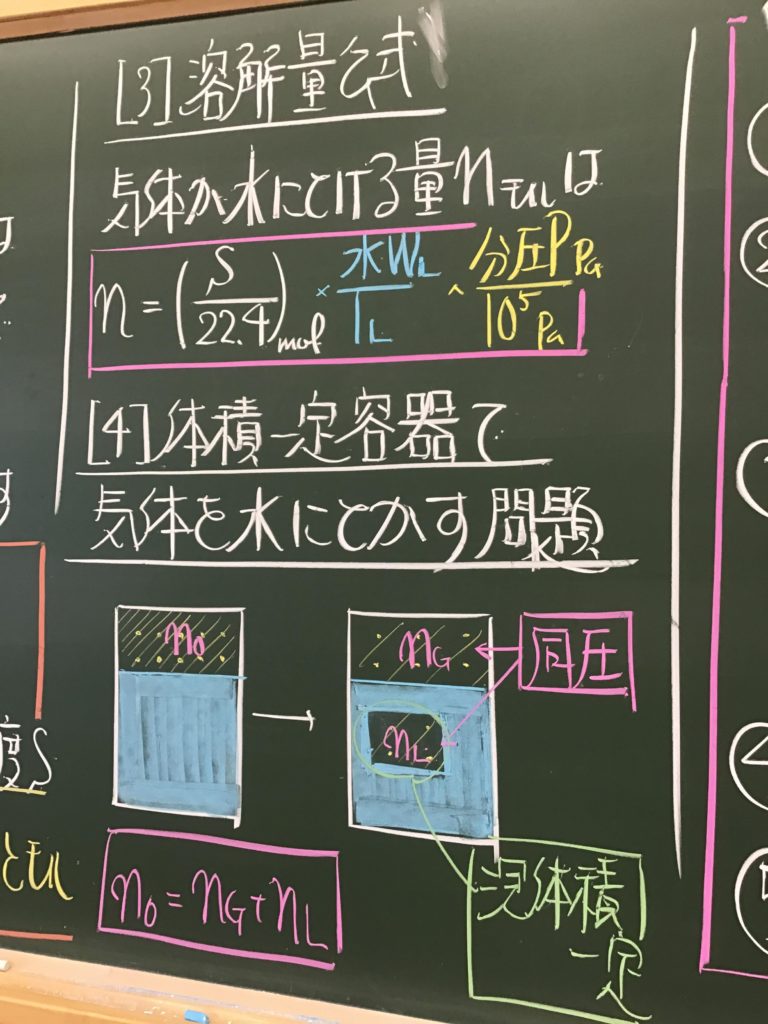 [3]溶解量公式
気体が水にとける量nモルは
n = (S/22.4)mol × 水WL/1L × 分圧P Pa/10⁵Pa
[4]体積一定容器で
気体を水にとかす問題
n₀
nG
同圧
nL
n₀ = nG + nL
現体積
一定
度S
ともモル
す
は